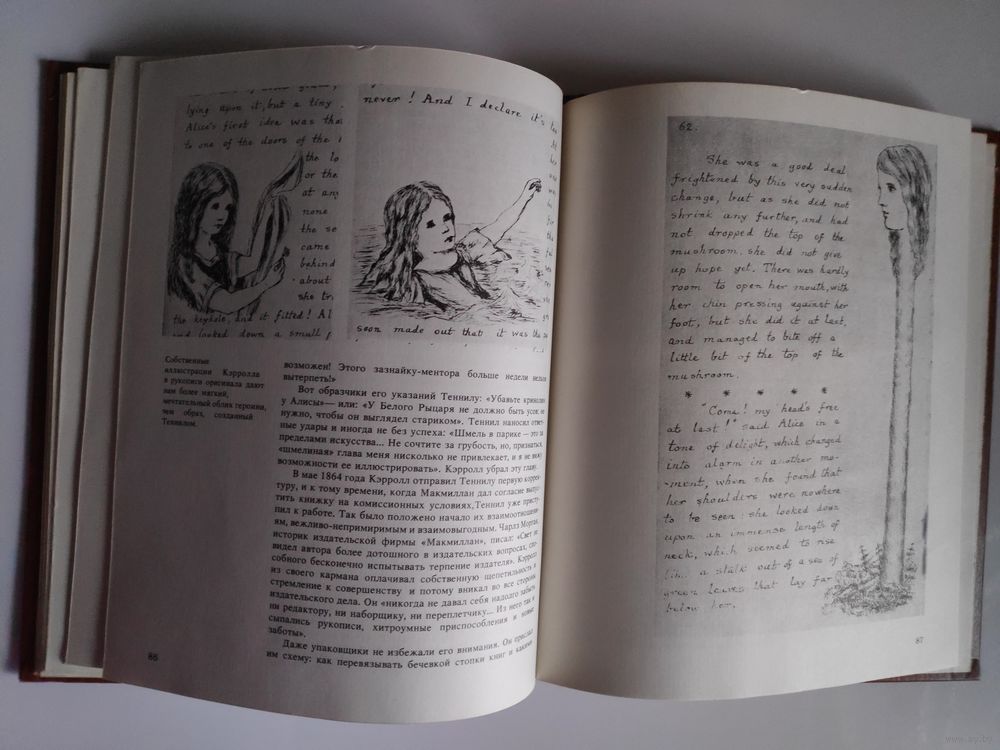 lying upon it, but a tiny
Alice's first idea was tha
to one of the doors of the
the lo
or the
at any
none
the se
came
behind
about
she tr
the keyhole, and it fitted! Al
and looked down a small
never! And I declare it's
soon made out that it was the
Собственные
иллюстрации Кэрролла
в рукописи оригинала дают
нам более мягкий,
мечтательный облик героини,
чем образ, созданный
Тенниелом.
возможен! Этого зазнайку-ментора больше недели нельзя
вытерпеть!»
Вот образчики его указаний Теннилу: «Убавьте кринолин
у Алисы»— или: «У Белого Рыцаря не должно быть усов; не
нужно, чтобы он выглядел стариком». Теннил наносил ответ-
ные удары и иногда не без успеха: «Шмель в парике — это за
пределами искусства... Не сочтите за грубость, но, признаться,
«шмелиная» глава меня нисколько не привлекает, и я не вижу
возможности ее иллюстрировать». Кэрролл убрал эту главу.
В мае 1864 года Кэрролл отправил Теннилу первую коррек-
туру, и к тому времени, когда Макмиллан дал согласие выпус-
тить книжку на комиссионных условиях, Теннил уже присту-
пил к работе. Так было положено начало их взаимоотношени-
ям, вежливо-непримиримым и взаимовыгодным. Чарлз Морган,
историк издательской фирмы «Макмиллан», писал: «Свет не
видел автора более дотошного в издательских вопросах, спо-
собного бесконечно испытывать терпение издателя». Кэрролл
из своего кармана оплачивал собственную щепетильность и
стремление к совершенству и потому вникал во все стороны
издательского дела. Он «никогда не давал себя надолго забыть
ни редактору, ни наборщику, ни переплетчику... Из него так и
сыпались рукописи, хитроумные приспособления и новые
заботы».
Даже упаковщики не избежали его внимания. Он прислал
им схему: как перевязывать бечевкой стопки книг и какими
86
62.
She was a good deal
frightened by this very sudden
change, but as she did not
shrink any further, and had
not dropped the top of the
mushroom, she did not give
up hope yet. There was hardly
room to open her mouth, with
her chin pressing against her
foot, but she did it at last,
and managed to bite off a
little bit of the top of the
mushroom.
* * * * *
"Come! my head's free
at last!" said Alice in a
tone of delight, which changed
into alarm in another mo-
-ment, when she found that
her shoulders were nowhere
to be seen: she looked down
upon an immense length of
neck, which seemed to rise
like a stalk out of a sea of
green leaves that lay far
below her.
87